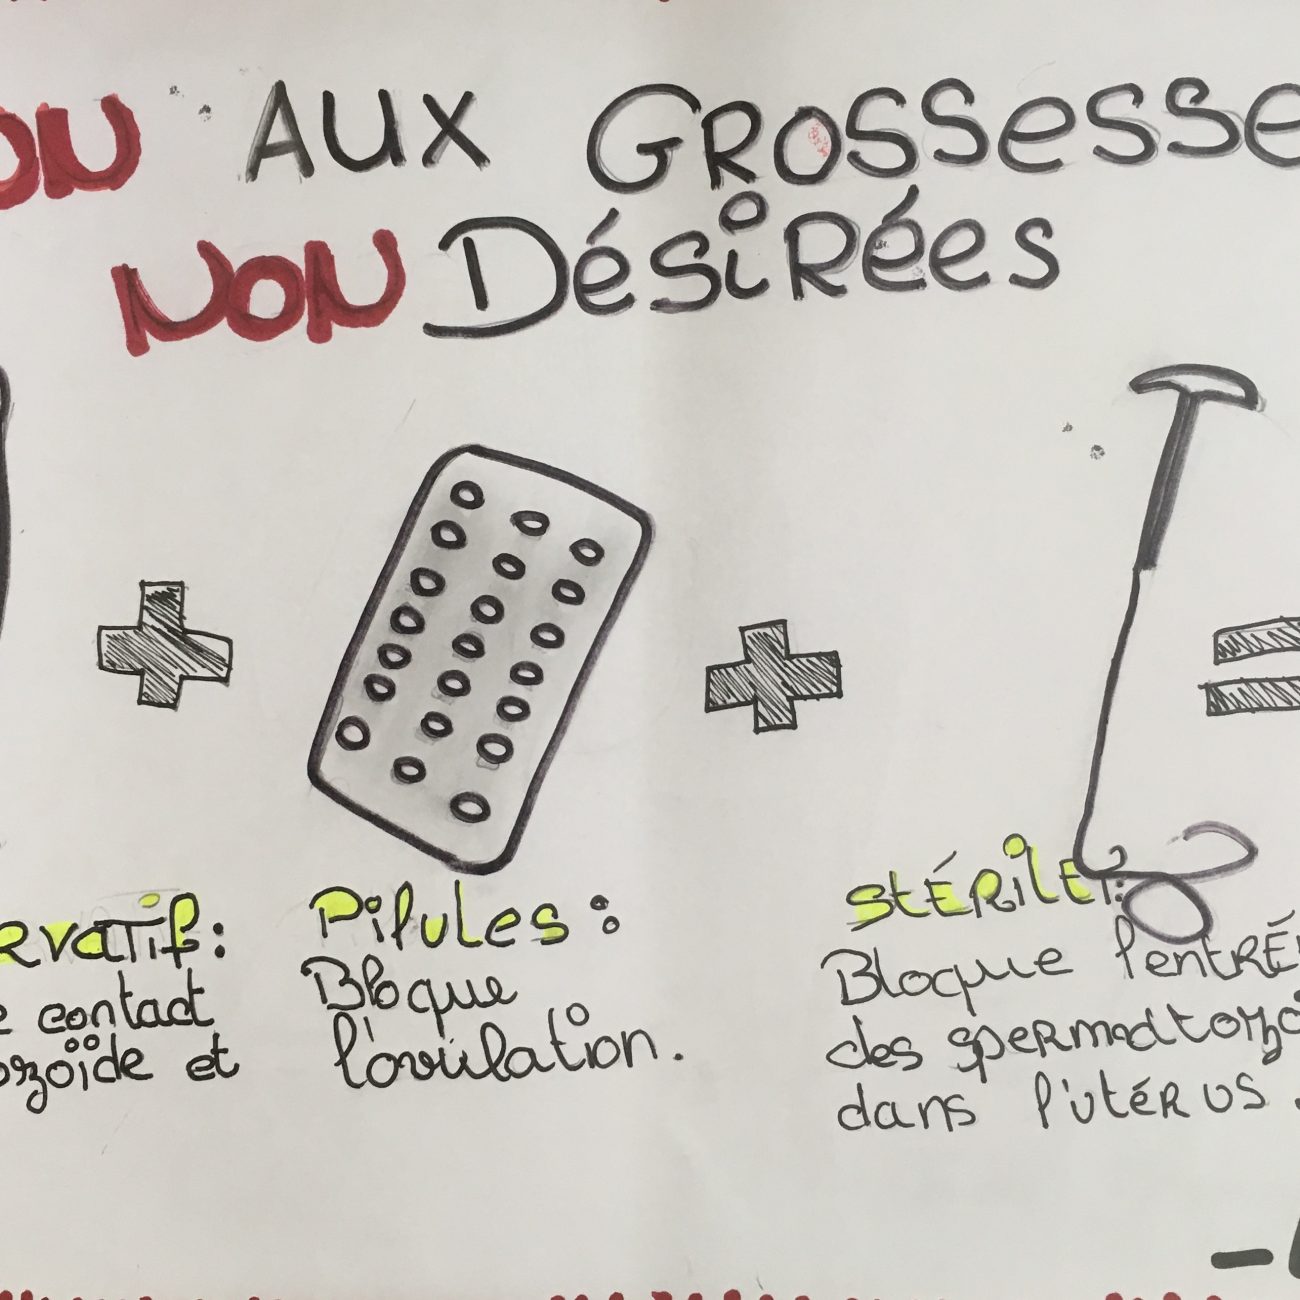 ON AUX GROSSESSE
NON DÉSIRÉES
ERVATIF :
e contact
ozoïde et
Pilules :
Bloque
l'ovulation.
STÉRILET :
Bloque l'entRÉ
des spermatozoï
dans l'utérus.